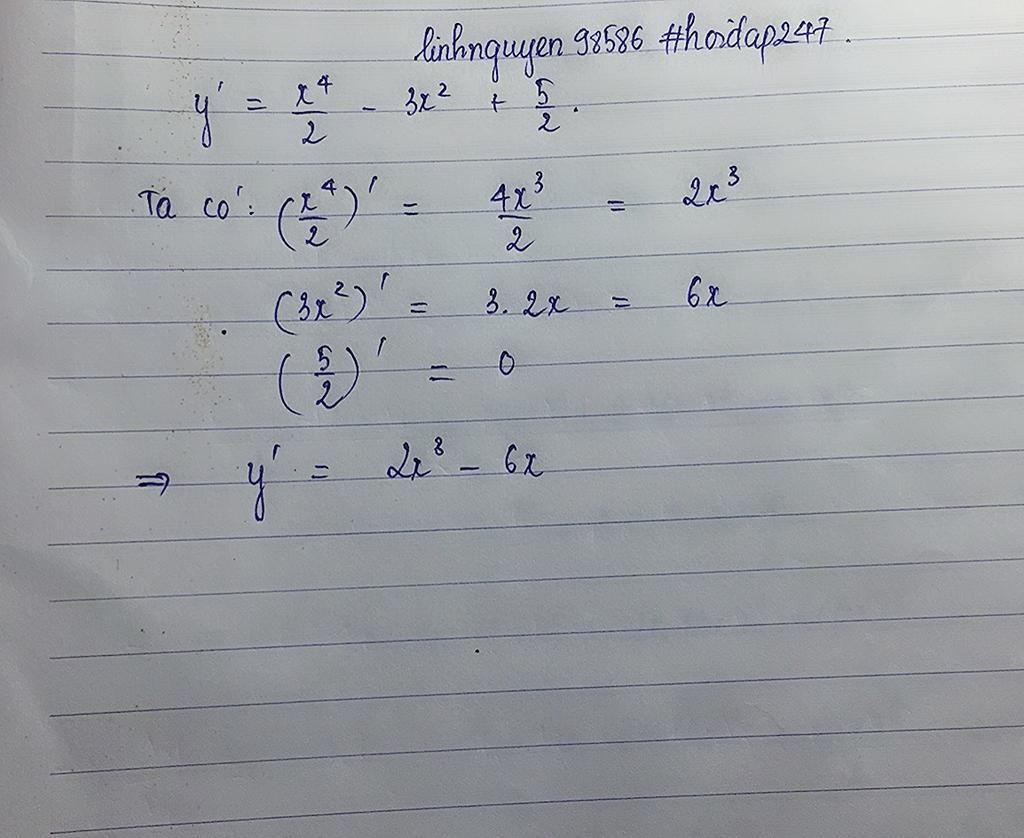 linhnguyen 98586 #hoidap247.
y' = x⁴/2 - 3x² + 5/2.
Ta có: (x⁴/2)' = 4x³/2 = 2x³
(3x²)' = 3. 2x = 6x
(5/2)' = 0
⇒ y' = 2x³ - 6x